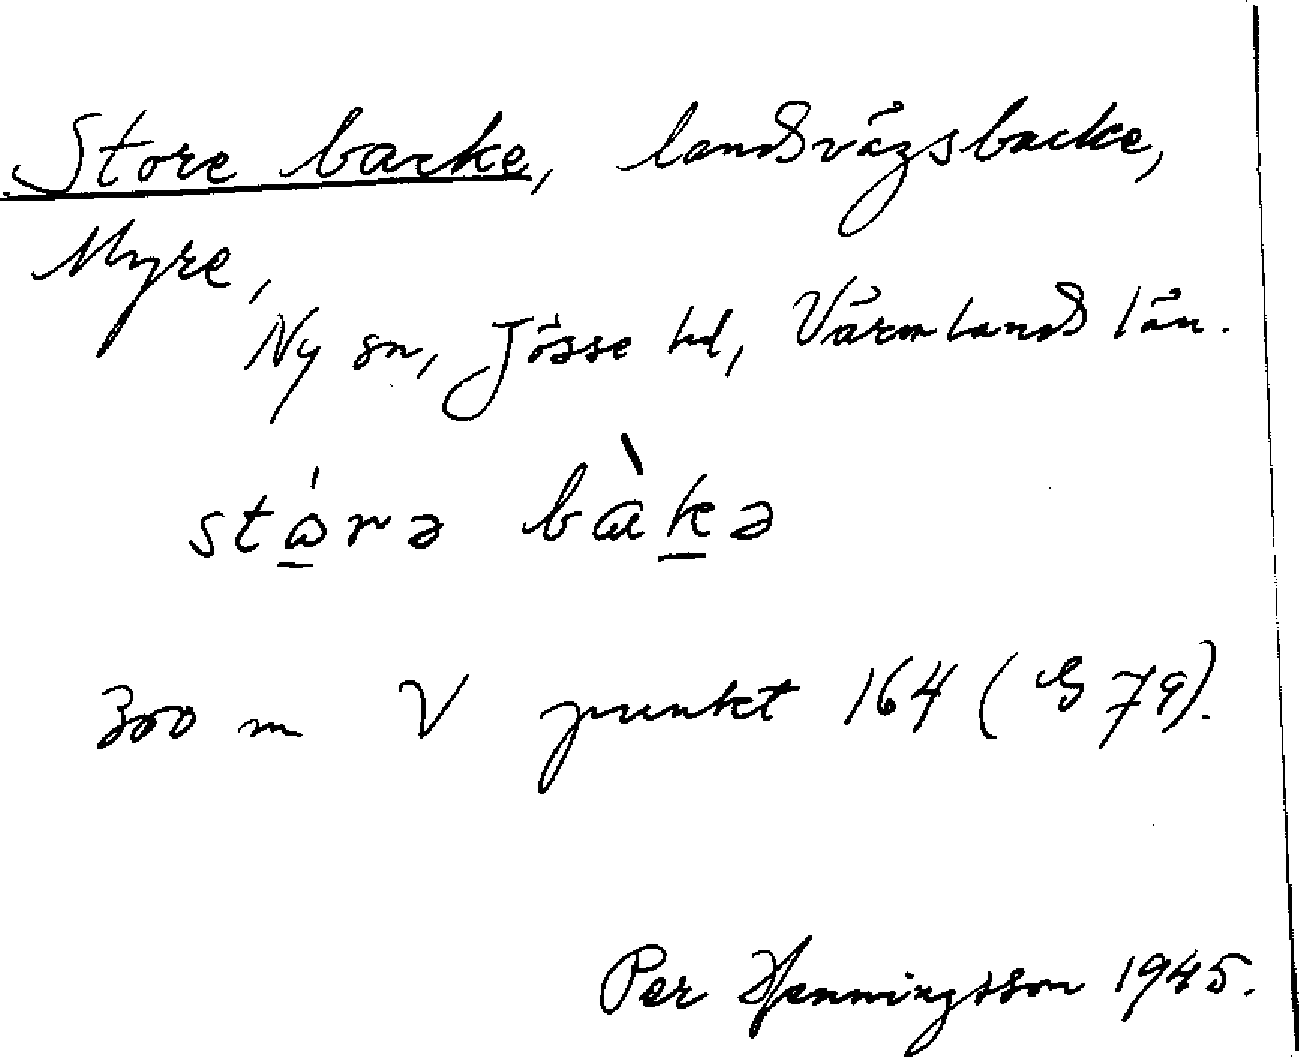 Store backe, landsvägsbacke,
Myre,
Ny sn, Jösse hd, Värmlands län.
stώ̲rə bὰk̲ə
300 m V punkt 164 (G 79).
Per Henningsson 1945.